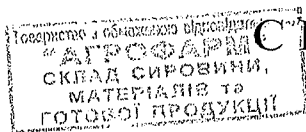 Товариство з обмеженою відповідальністю
"АГРОФАРМ"
СКЛАД СИРОВИНИ,
МАТЕРІАЛІВ ТА
ГОТОВОЇ ПРОДУКЦІЇ